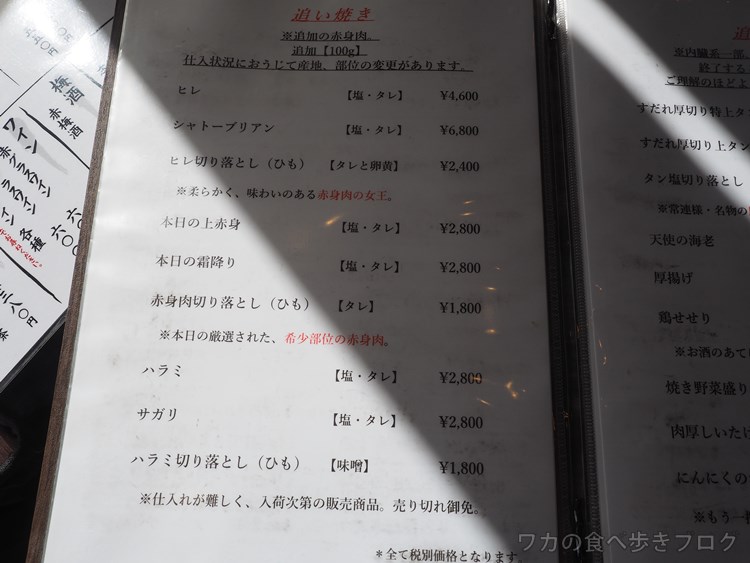 追い焼き
※追加の赤身肉。
追加【100g】
仕入状況におうじて産地、部位の変更があります。
ヒレ 【塩・タレ】 ¥4,600
シャトーブリアン 【塩・タレ】 ¥6,800
ヒレ切り落とし（ひも） 【タレと卵黄】 ¥2,400
※柔らかく、味わいのある赤身肉の女王。
本日の上赤身 【塩・タレ】 ¥2,800
本日の霜降り 【塩・タレ】 ¥2,800
赤身肉切り落とし（ひも） 【タレ】 ¥1,800
※本日の厳選された、希少部位の赤身肉。
ハラミ 【塩・タレ】 ¥2,800
サガリ 【塩・タレ】 ¥2,800
ハラミ切り落とし（ひも） 【味噌】 ¥1,800
※仕入れが難しく、入荷次第の販売商品。売り切れ御免。
＊全て税別価格となります。
※内臓系一部、
終了する
ご理解のほどよ
すだれ厚切り特上タ
すだれ厚切り上タン
タン塩切り落とし
※常連様・名物の
天使の海老
厚揚げ
鶏せせり
※お酒のあて
焼き野菜盛り
肉厚しいたけ
にんにくの
※もう一
梅酒
赤梅酒
ワイン
各種
ワカの食べ歩きブログ